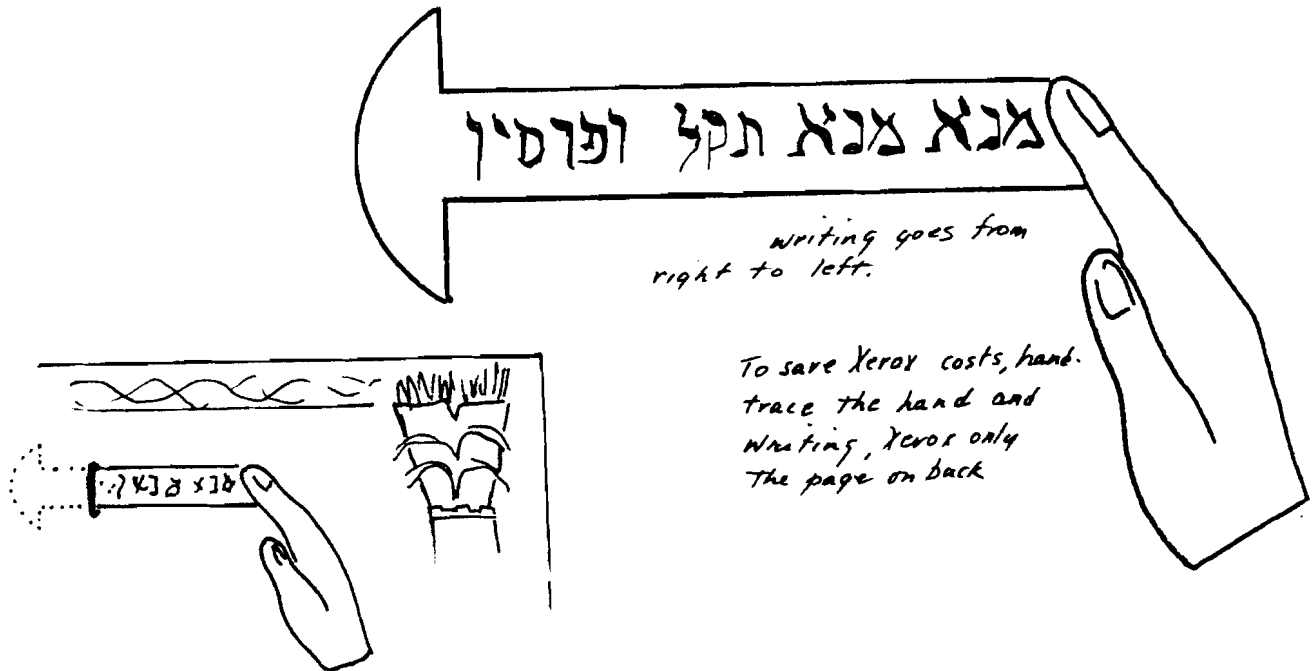 מנא מנא תקל ופרסין
writing goes from
right to left.
To save Xerox costs, hand-
trace the hand and
writing, Xerox only
the page on back
מנא מנא